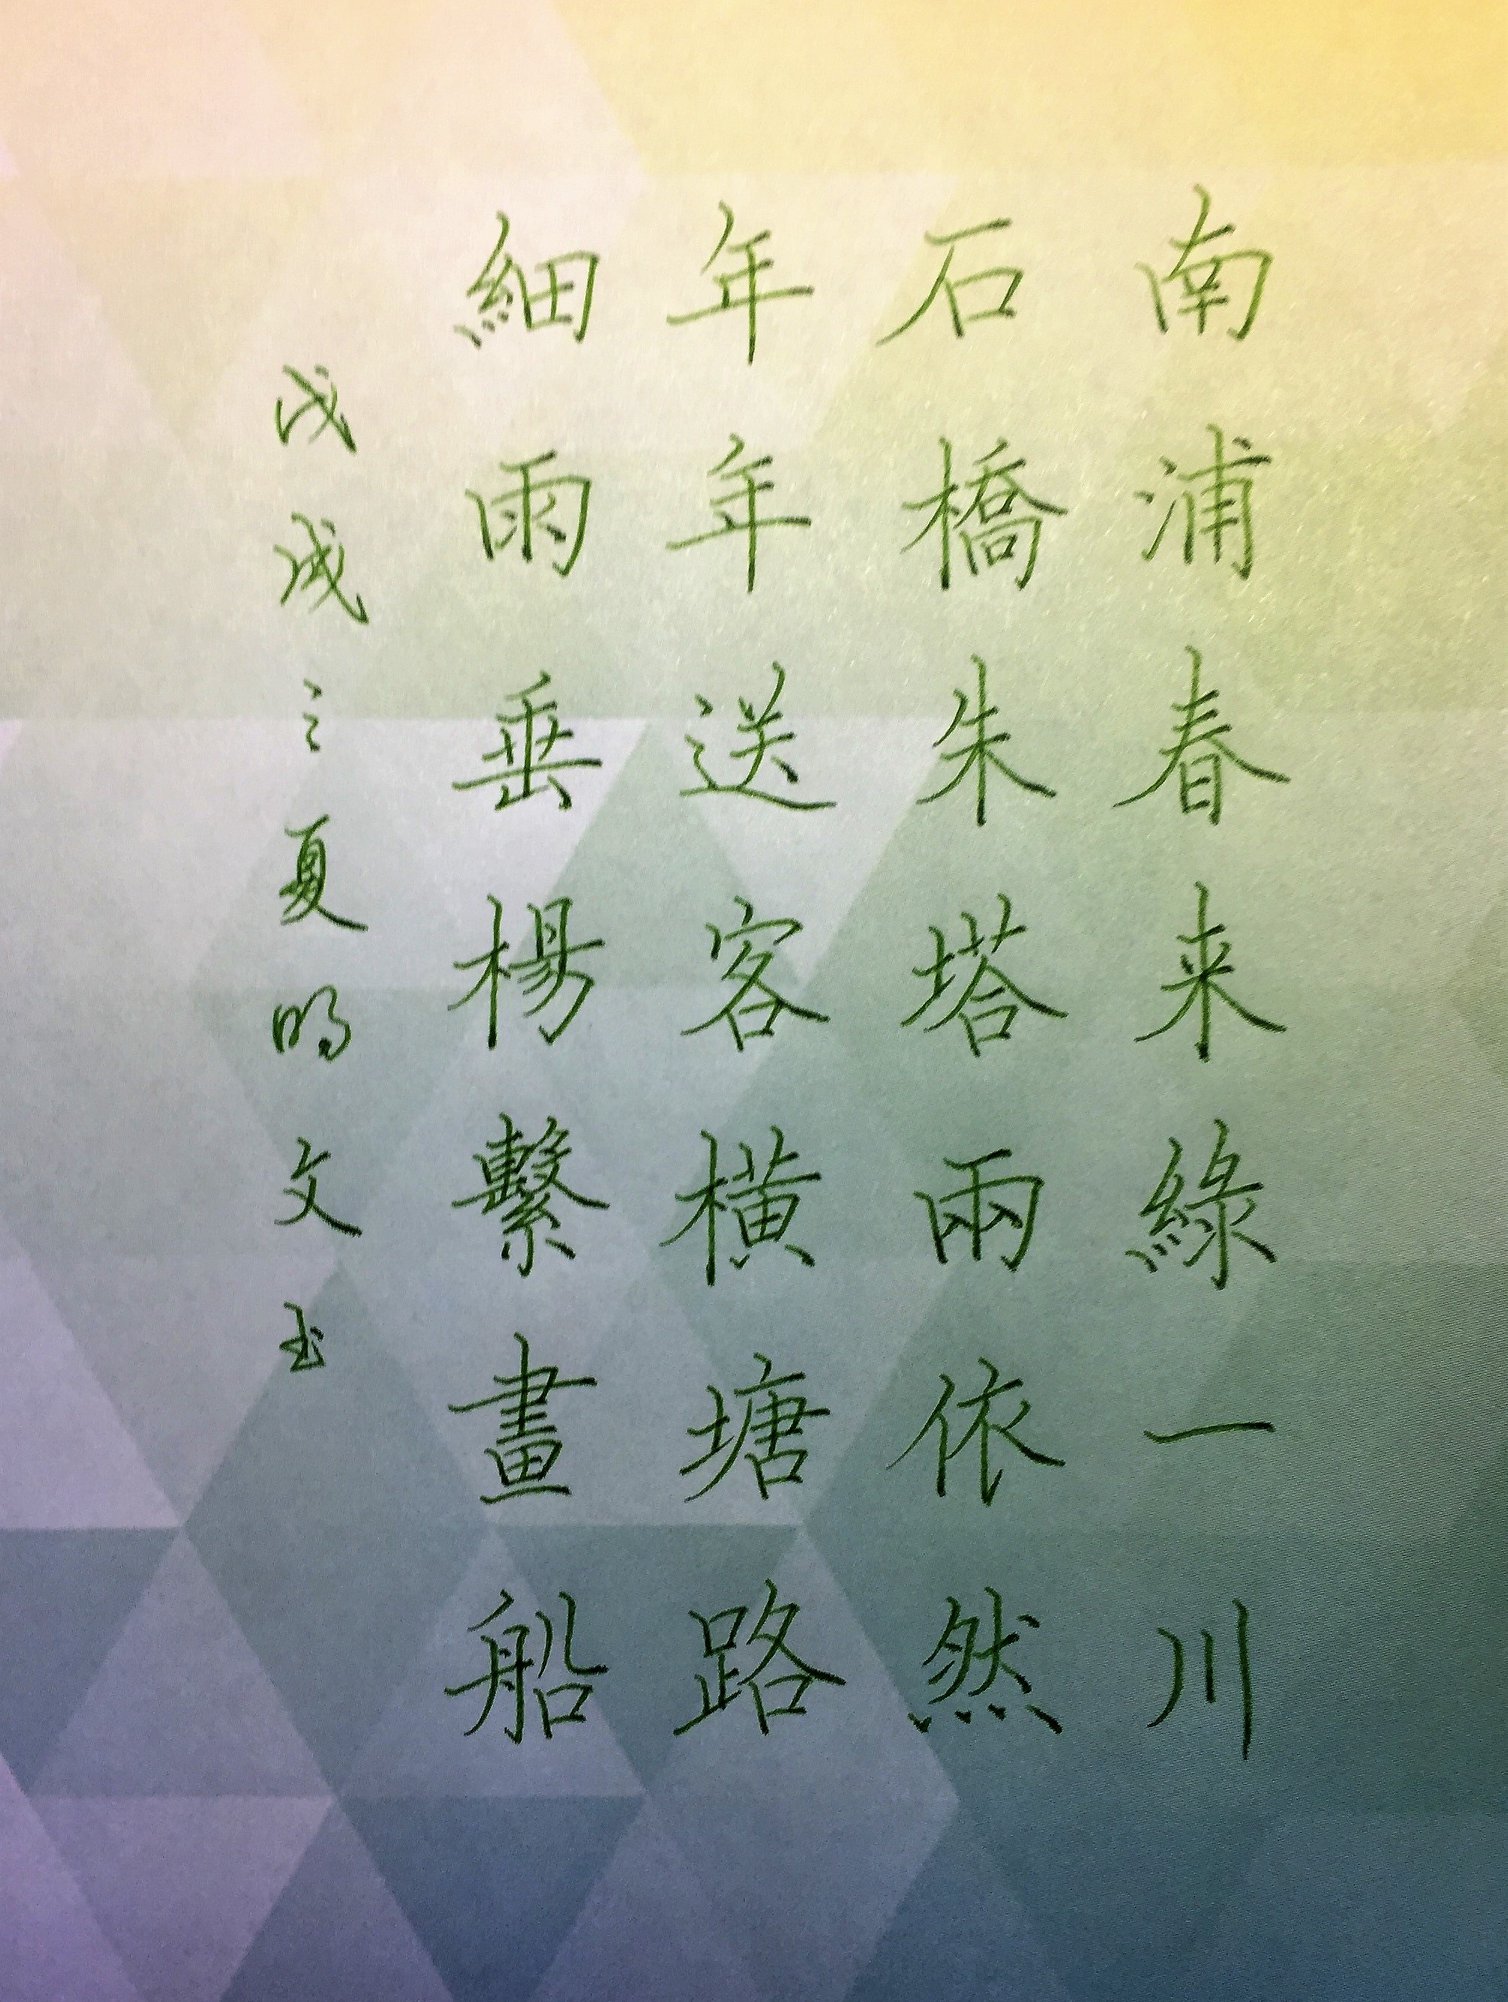 南浦春来綠一川
石橋朱塔兩依然
年年送客橫塘路
細雨垂楊繫畫船
戊戌之夏明文书